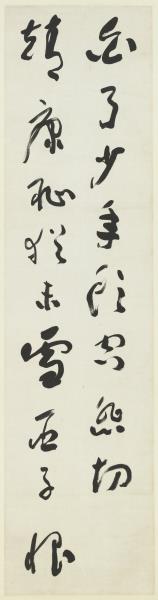 白了少年頭空悲切
靖康恥猶未雪臣子恨